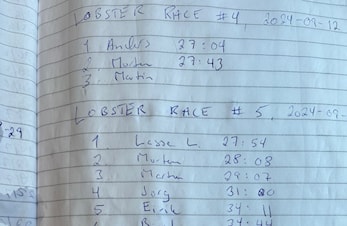 LOBSTER RACE # 4, 2024-09-12
1 Anders 27:04
2 Morten 27:43
3. Martin
LOBSTER RACE # 5, 2024-09-
-29
1 Lasse L. 27:54
2 Morten 28:08
3 29:07
4 Jorg 31:20
5 Eirik 34:11